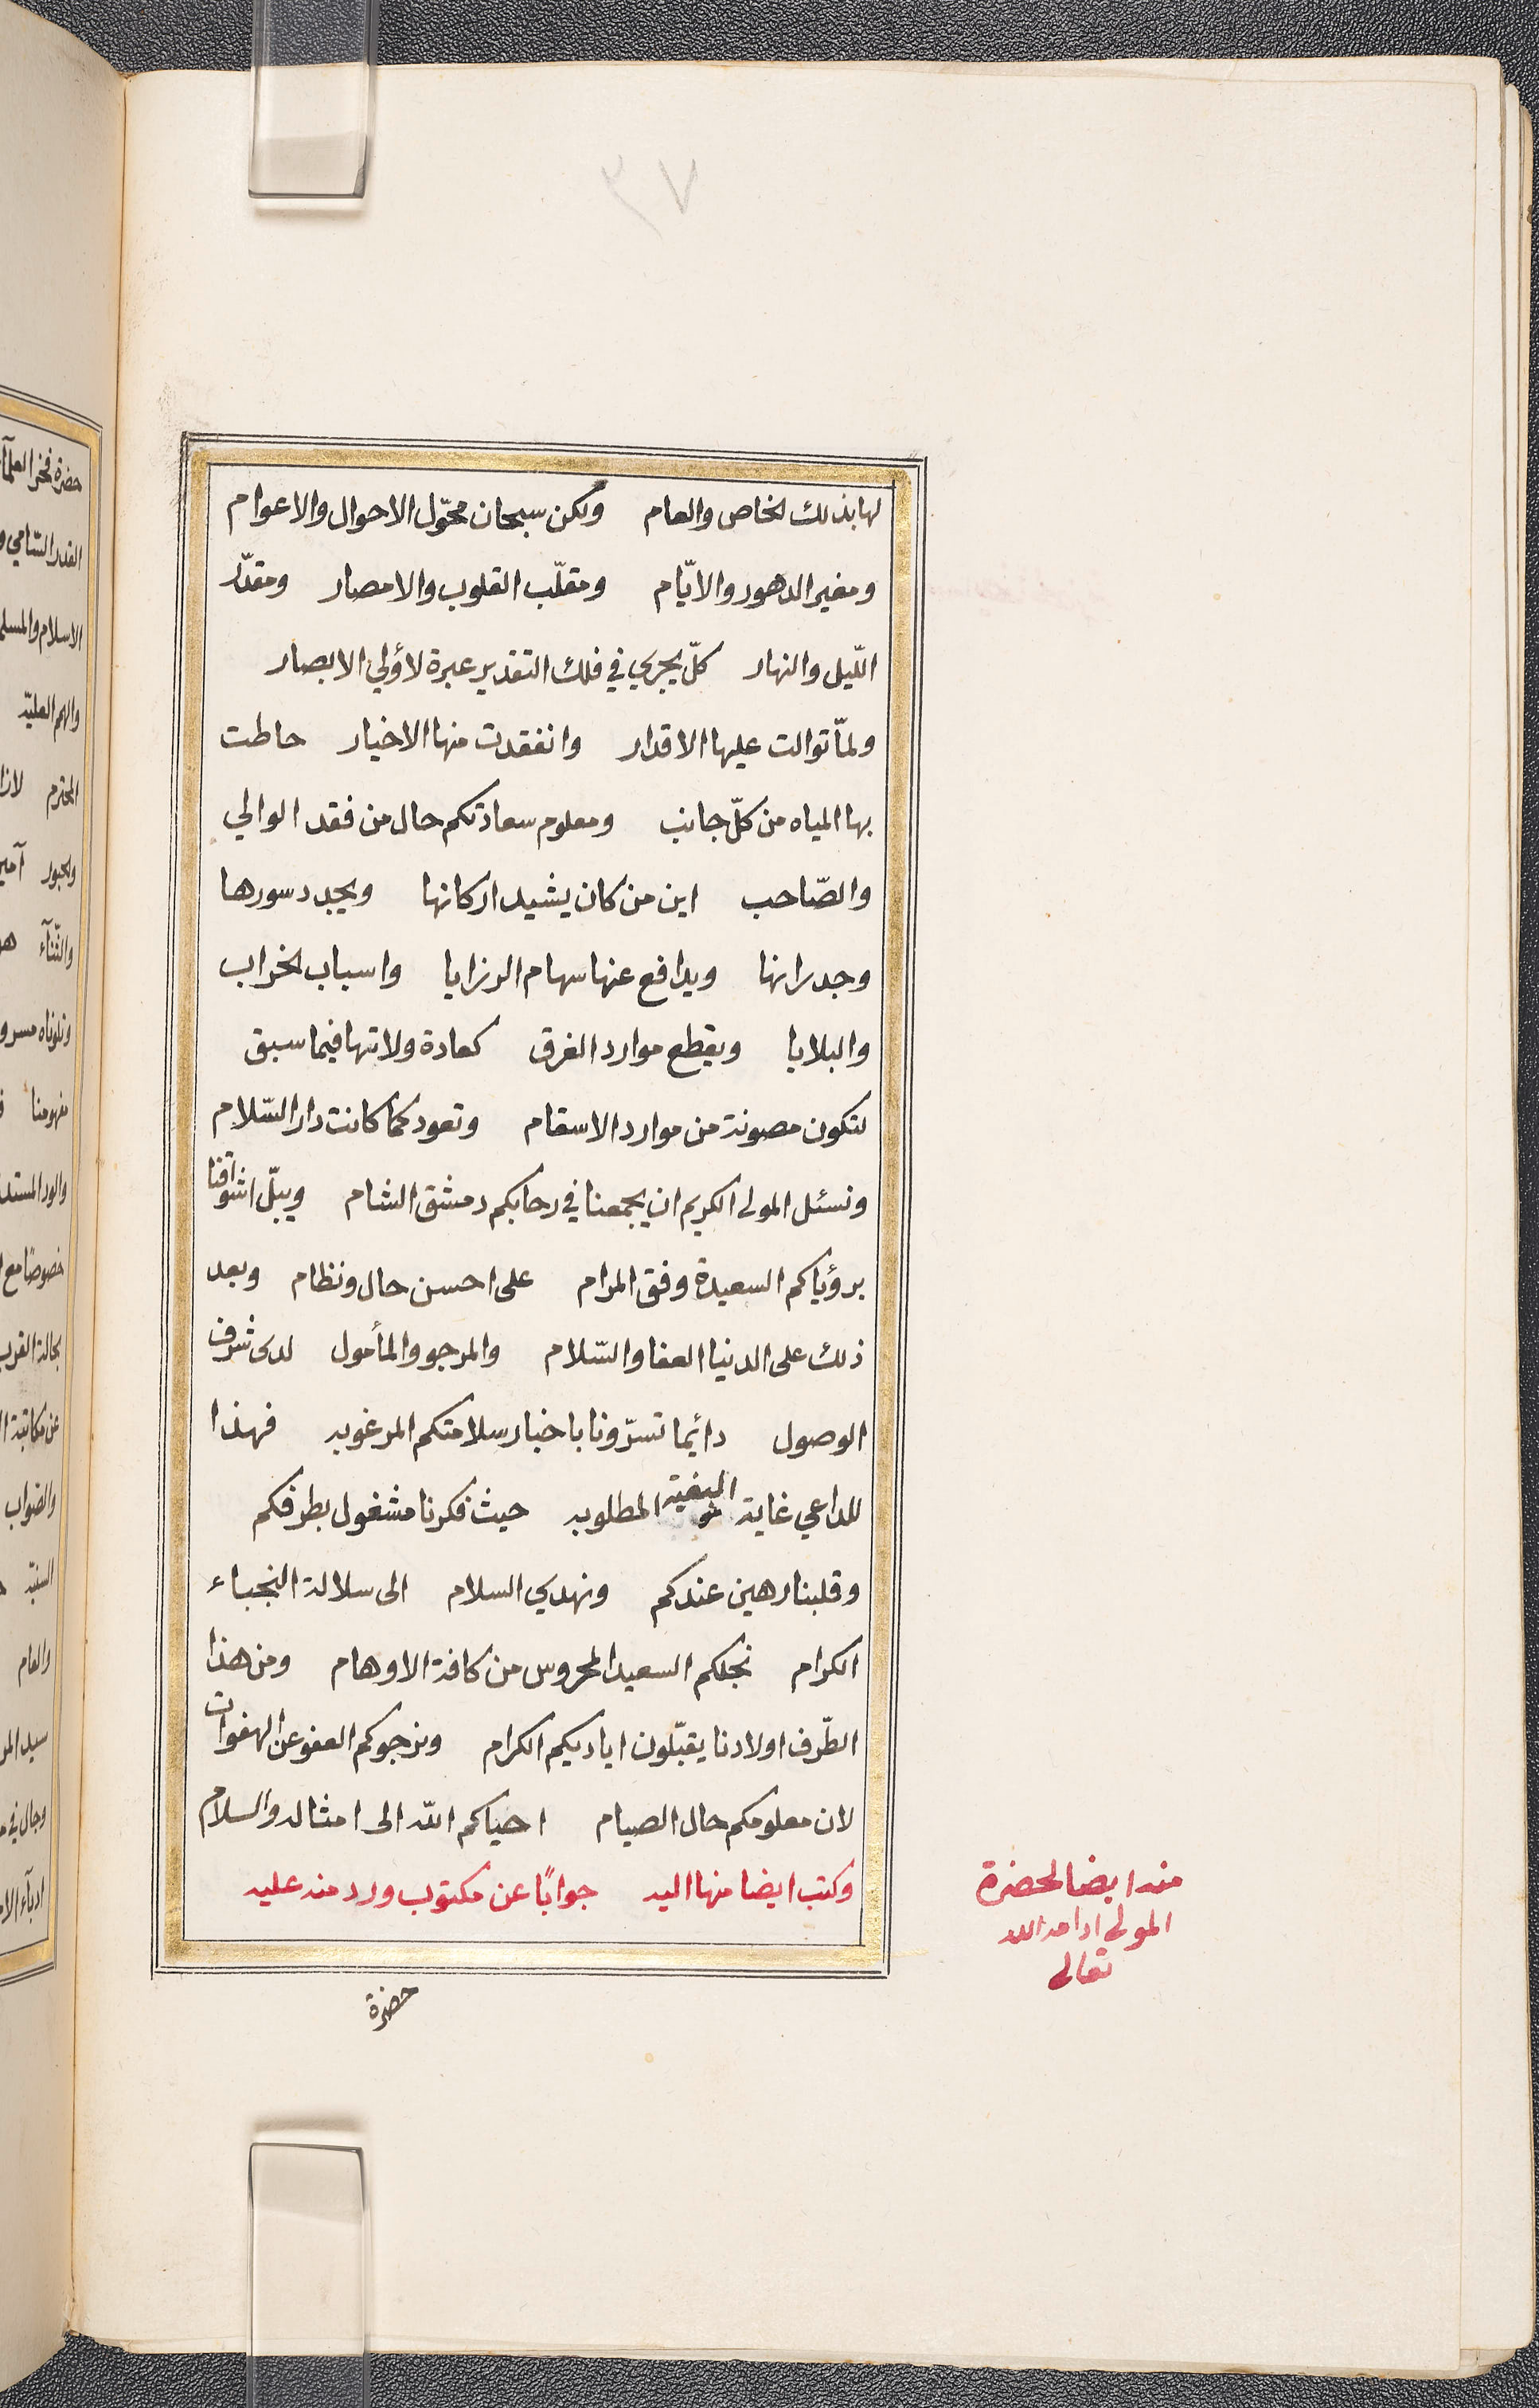 ٧٣
لها بذلك الخاص والعام ولكن سبحان محوّل الاحوال والاعوام
ومغير الدهور والايّام ومقلّب القلوب والامصار ومقدّر
اللّيل والنهار كلّ يجري في فلك التقدير عبرة لاؤلي الابصار
ولمّا توالت عليها الاقدار وانفقدت منها الاخيار حاطت
بها المياه من كلّ جانب ومعلوم سعادتكم حال من فقد الوالي
والصّاحب اين من كان يشيد اركانها ويجدد سورها
وجدرانها ويدافع عنها سهام الرزايا واسباب الخراب
والبلايا ويقطع موارد الغرق كعادة ولاتها فيما سبق
لتكون مصونة من موارد الاسقام وتعود كما كانت دار السّلام
ونسئل المولى الكريم ان يجمعنا في رحابكم دمشق الشام ويبلّ اشواقنا
برؤياكم السعيدة وفق المرام على احسن حال ونظام وبعد
ذلك على الدنيا العفا والسّلام والمرجو والمأمول لدى شرف
الوصول دائما تسرّونا باخبار سلامتكم المرغوبه فهذا
للداعي غاية البغية المطلوبه حيث فكرنا مشغول بطرفكم
وقلبنا رهين عندكم ونهدي السلام الى سلالة النجباء
الكرام نجلكم السعيد المحروس من كافة الاوهام ومن هذا
الطّرف اولادنا يقبّلون اياديكم الكرام ونرجوكم العفو عن الهفوات
لان معلومكم حال الصيام احياكم الله الى امثاله والسلام
وكتب ايضا منها اليه جوابًا عن مكتوب ورد منه عليه
منه ايضا لحضرة
المولى ادامه الله
تعالى
حضرة